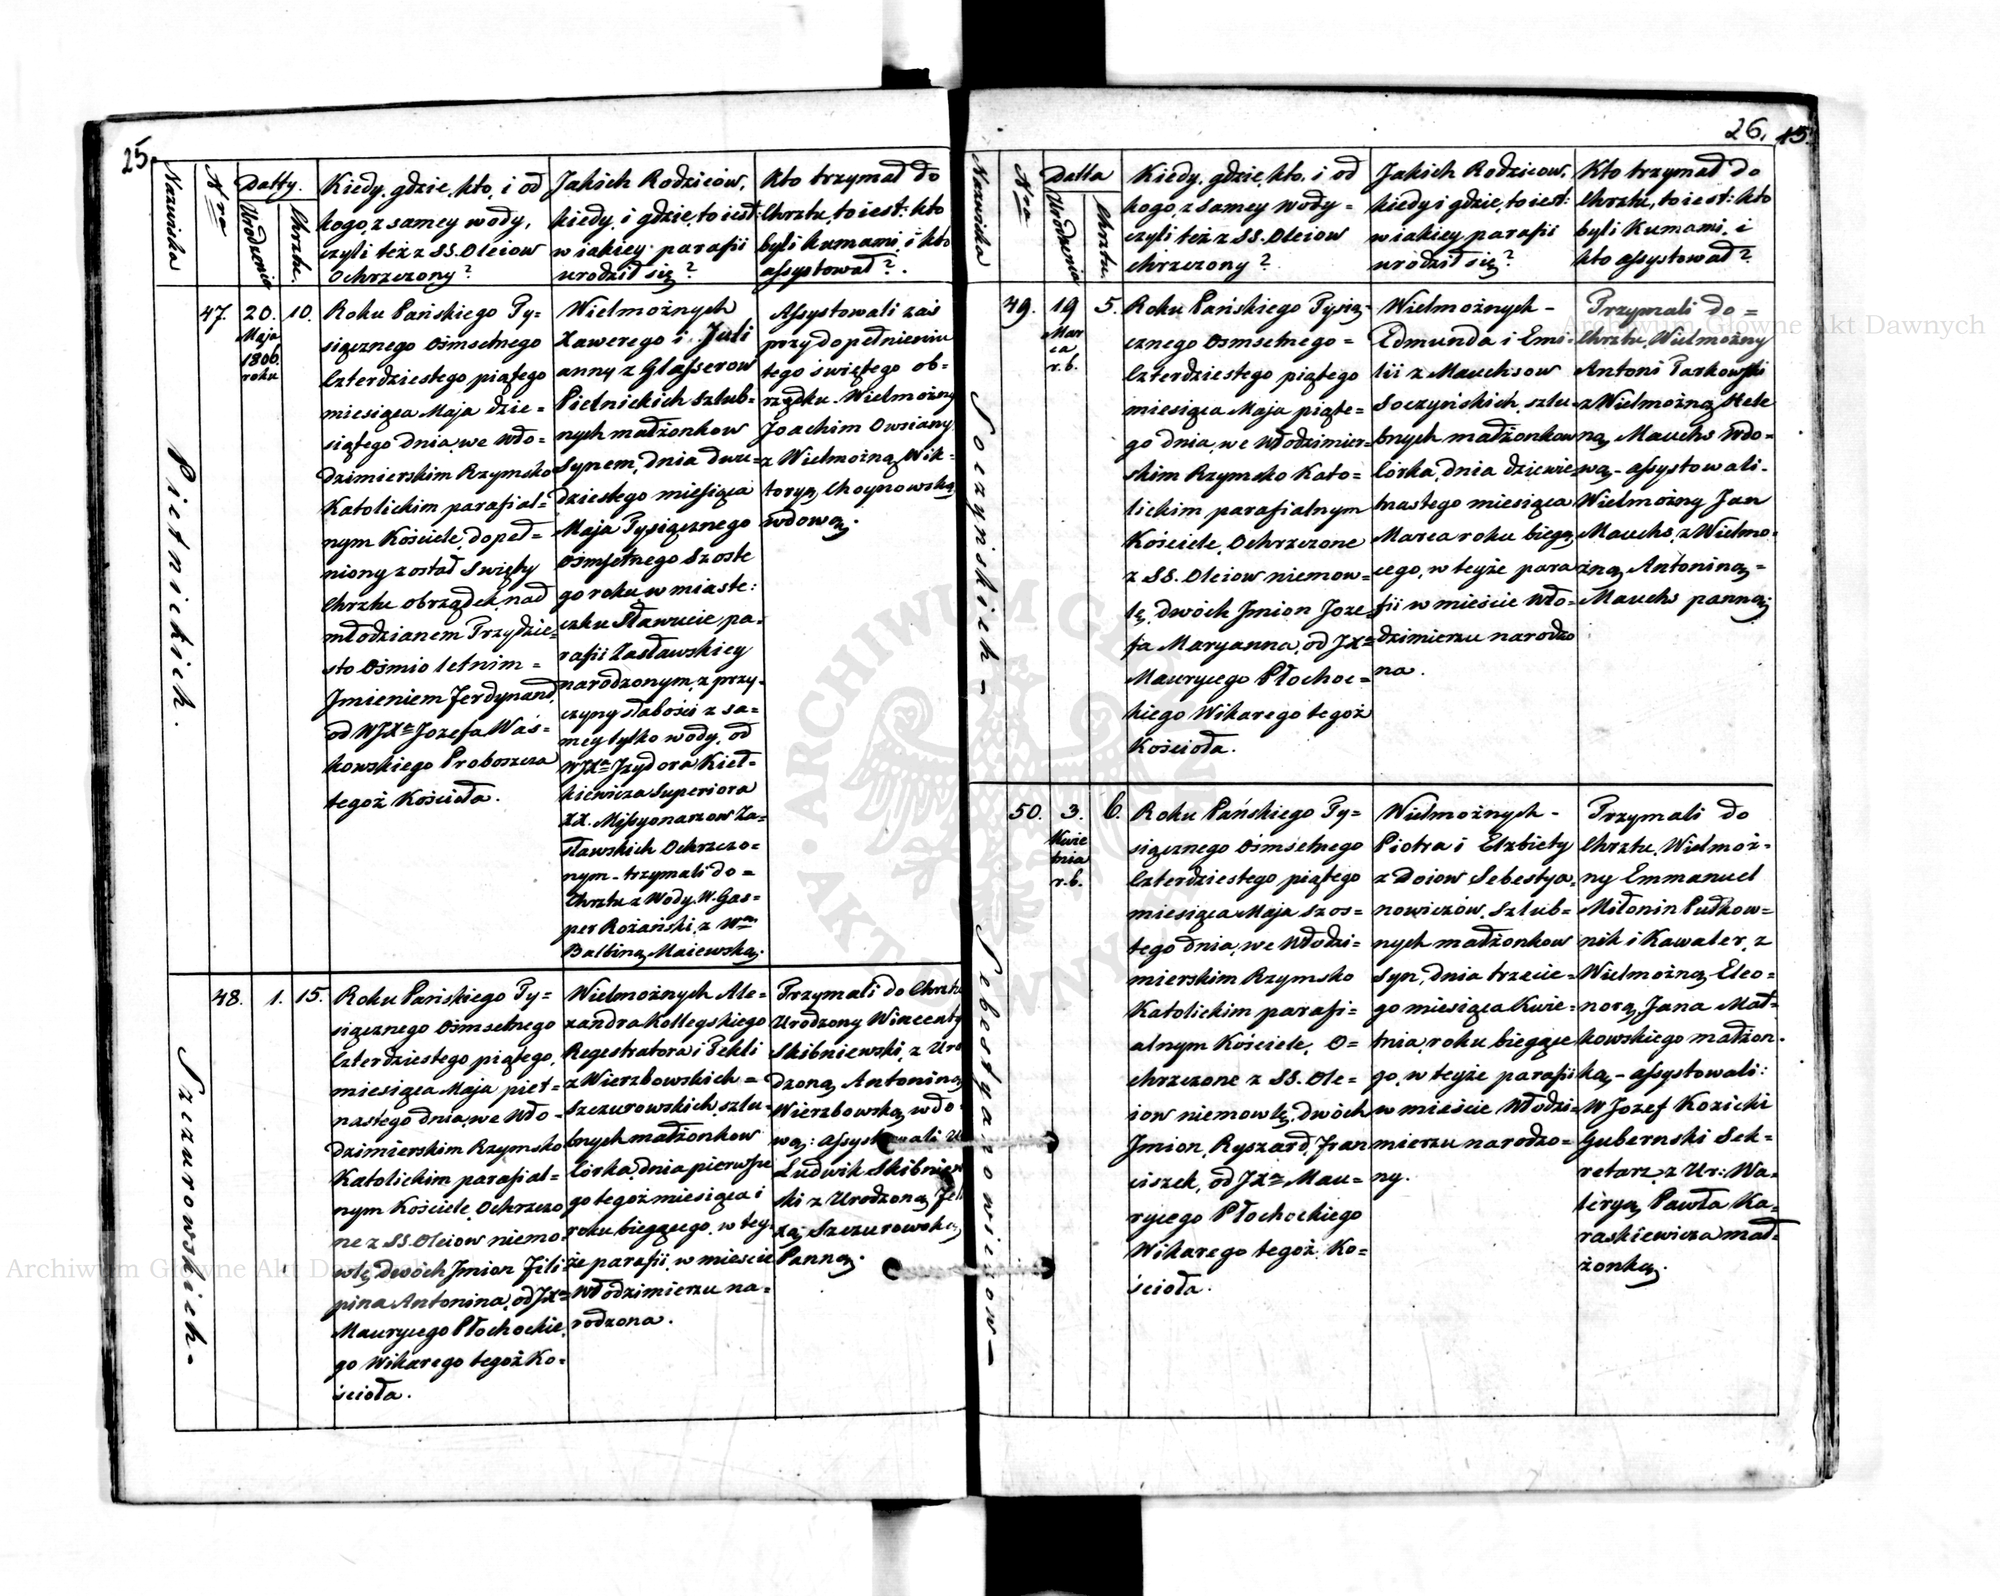 25.
Nazwiska
Nra
Datty.
Urodzenia
Chrztu.
Kiedy, gdzie, kto, i od
kogo, z samey wody,
czyli też z SS. Oleiow
Ochrzczony?
Jakich Rodziców,
kiedy, i gdzie, to iest:
w iakiey parafii
urodził się?
Kto trzymał do
Chrztu, to iest: kto
byli kumami, i kto
assystował?.
Pietnickich.
47.
20.
Maja
1806.
roku
10.
Roku Pańskiego Ty=
siącznego Ośmsetnego
Czterdziestego piątego
miesiąca Maja dzie=
siątego dnia, we Wło=
dzimierskim Rzymsko
Katolickim parafial=
nym Kościele, dopeł=
niony został Swięty
Chrztu obrządek, nad
młodzianem Trzydzie=
sto Ośmio letnim =
Jmieniem Ferdynand,
od WJXa Jozefa Waś=
kowskiego Proboszcza
tegoż Kościoła.
Wielmożnych
Xawerego i Juli
anny z Glasserow
Pietnickich szlub=
nych małżonkow
Synem, dnia dwu=
dziestego miesiąca
Maja Tysiącznego
Ośmsetnego Szoste
go roku, w miaste:
czku Sławucie, pa=
rafii Zasławskiey
narodzonym, z przy=
czyny słabości z sa=
mey tylko wody, od
WJXa Jzydora Kieł=
kiewicza Superiora
XX. Missyonarzow Za=
sławskich Ochrzczo=
nym - trzymali do =
Chrztu z Wody, W. Gas=
per Rożański, z Wną
Balbiną Maiewską.
Assystowali zaś
przy dopełnieniu
tego świętego ob=
rządku Wielmożny
Joachim Owsiany
z Wielmożną Wik=
toryą Choynowską
wdową.
Szczurowskich -
48.
1.
15.
Roku Pańskiego Ty=
siącznego Ośmsetnego
Czterdziestego piątego,
miesiąca Maja piet=
nastego dnia, we Wło=
dzimierskim Rzymsko
Katolickim parafial=
nym Kościele, Ochrzczo
ne z SS. Oleiow niemo=
wlę, dwóch Jmion Fili=
pina Antonina, od JXa
Mauryiego Płochockie,
go Wikarego tegoż Ko=
ścioła.
Wielmożnych Ale=
xandra Kollegskiego
Regestratora i Tekli
z Wierzbowskich =
Szczurowskich, szlu=
bnych małżonkow
Corka, dnia pierwsze
go tegoż miesiąca i
roku bieżącego, w tey=
że parafii, w mieście
Włodzimierzu na=
rodzona.
Trzymali do Chrztu
Urodzony Wincenty
Skibniewski, z Uro
dzoną Antoniną
Wierzbowską wdo=
wą: assystowali U
Ludwik Skibniew
ski z Urodzoną Fel
xą Szczurowską
Panną.
26.
15.
Nazwiska
Nra
Datta
Urodzenia
Chrztu.
Kiedy, gdzie, kto, i od
kogo, z Samey wody =
czyli też z SS. Oleiow
chrzczony?
Jakich Rodzicow,
kiedy i gdzie, to iest:
w iakiey parafii
urodził się?
Kto trzymał do
Chrztu, to iest: kto
byli Kumami, i
kto assystował?
Soczyńskich -
49.
19
Mar
ca
r.b.
5.
Roku Pańskiego Tysią=
cznego Osmsetnego =
Czterdziestego piątego
miesiąca Maja piąte=
go dnia, we Włodzimier=
skim Rzymsko Kato=
lickim parafialnym
Kościele, Ochrzczone
z SS. Oleiow niemow=
lę, dwóch Jmion Joze=
fa Maryanna, od JXa
Mauryiego Płochoc=
kiego Wikarego tegoż
Kościoła.
Wielmożnych -
Edmunda i Emi=
lii z Mauchsow
Soczyńskich, szlu=
bnych małżonkow
Corka, dnia dziewie
tnastego miesiąca
Marca roku bieżą
cego, w teyże para
fii w mieście Wło=
dzimierzu narodzo
na.
Trzymali do =
Chrztu, Wielmożny
Antoni Parkowski
z Wielmożną Hele
ną Mauchs wdo=
wą - assystowali -
Wielmożny Jan
Mauchs, z Wielmo=
żną Antoniną =
Mauchs panną;
Sebestyanowiczow -
50.
3.
Kwie
tnia
r.b.
6.
Roku Pańskiego Ty=
siącznego Ośmsetnego
Czterdziestego piątego
miesiąca Maja Szos=
tego dnia, we Włodzi=
mierskim Rzymsko
Katolickim parafi=
alnym Kościele, O=
chrzczone z SS. Ole=
iow niemowlę, dwóch
Jmion, Ryszard, Fran
ciszek, od JXa Mau=
ryiego Płochockiego
Wikarego tegoż Ko=
ścioła.
Wielmożnych -
Piotra i Elżbiety
z Doiow Sebestya=
nowiczów, Szlub=
nych małżonkow
Syn, dnia trzecie=
go miesiąca Kwie=
tnia, roku bieżące
go, w teyże parafii
w mieście Włodzi=
mierzu narodzo=
ny.
Trzymali do
Chrztu, Wielmoż=
ny Emmanuel
Miłonin Pułkow=
nik i Kawaler, z
Wielmożną Eleo=
norą, Jana Mał=
kowskiego małżon=
ką - assystowali:
W Jozef Kozicki
Gubernski Sek=
retarz, z Ur: Wa=
leryą, Pawła Ka=
raskiewicza mał=
żonką.
Archiwum Główne Akt Dawnych
Archiwum Główne Akt Dawnych